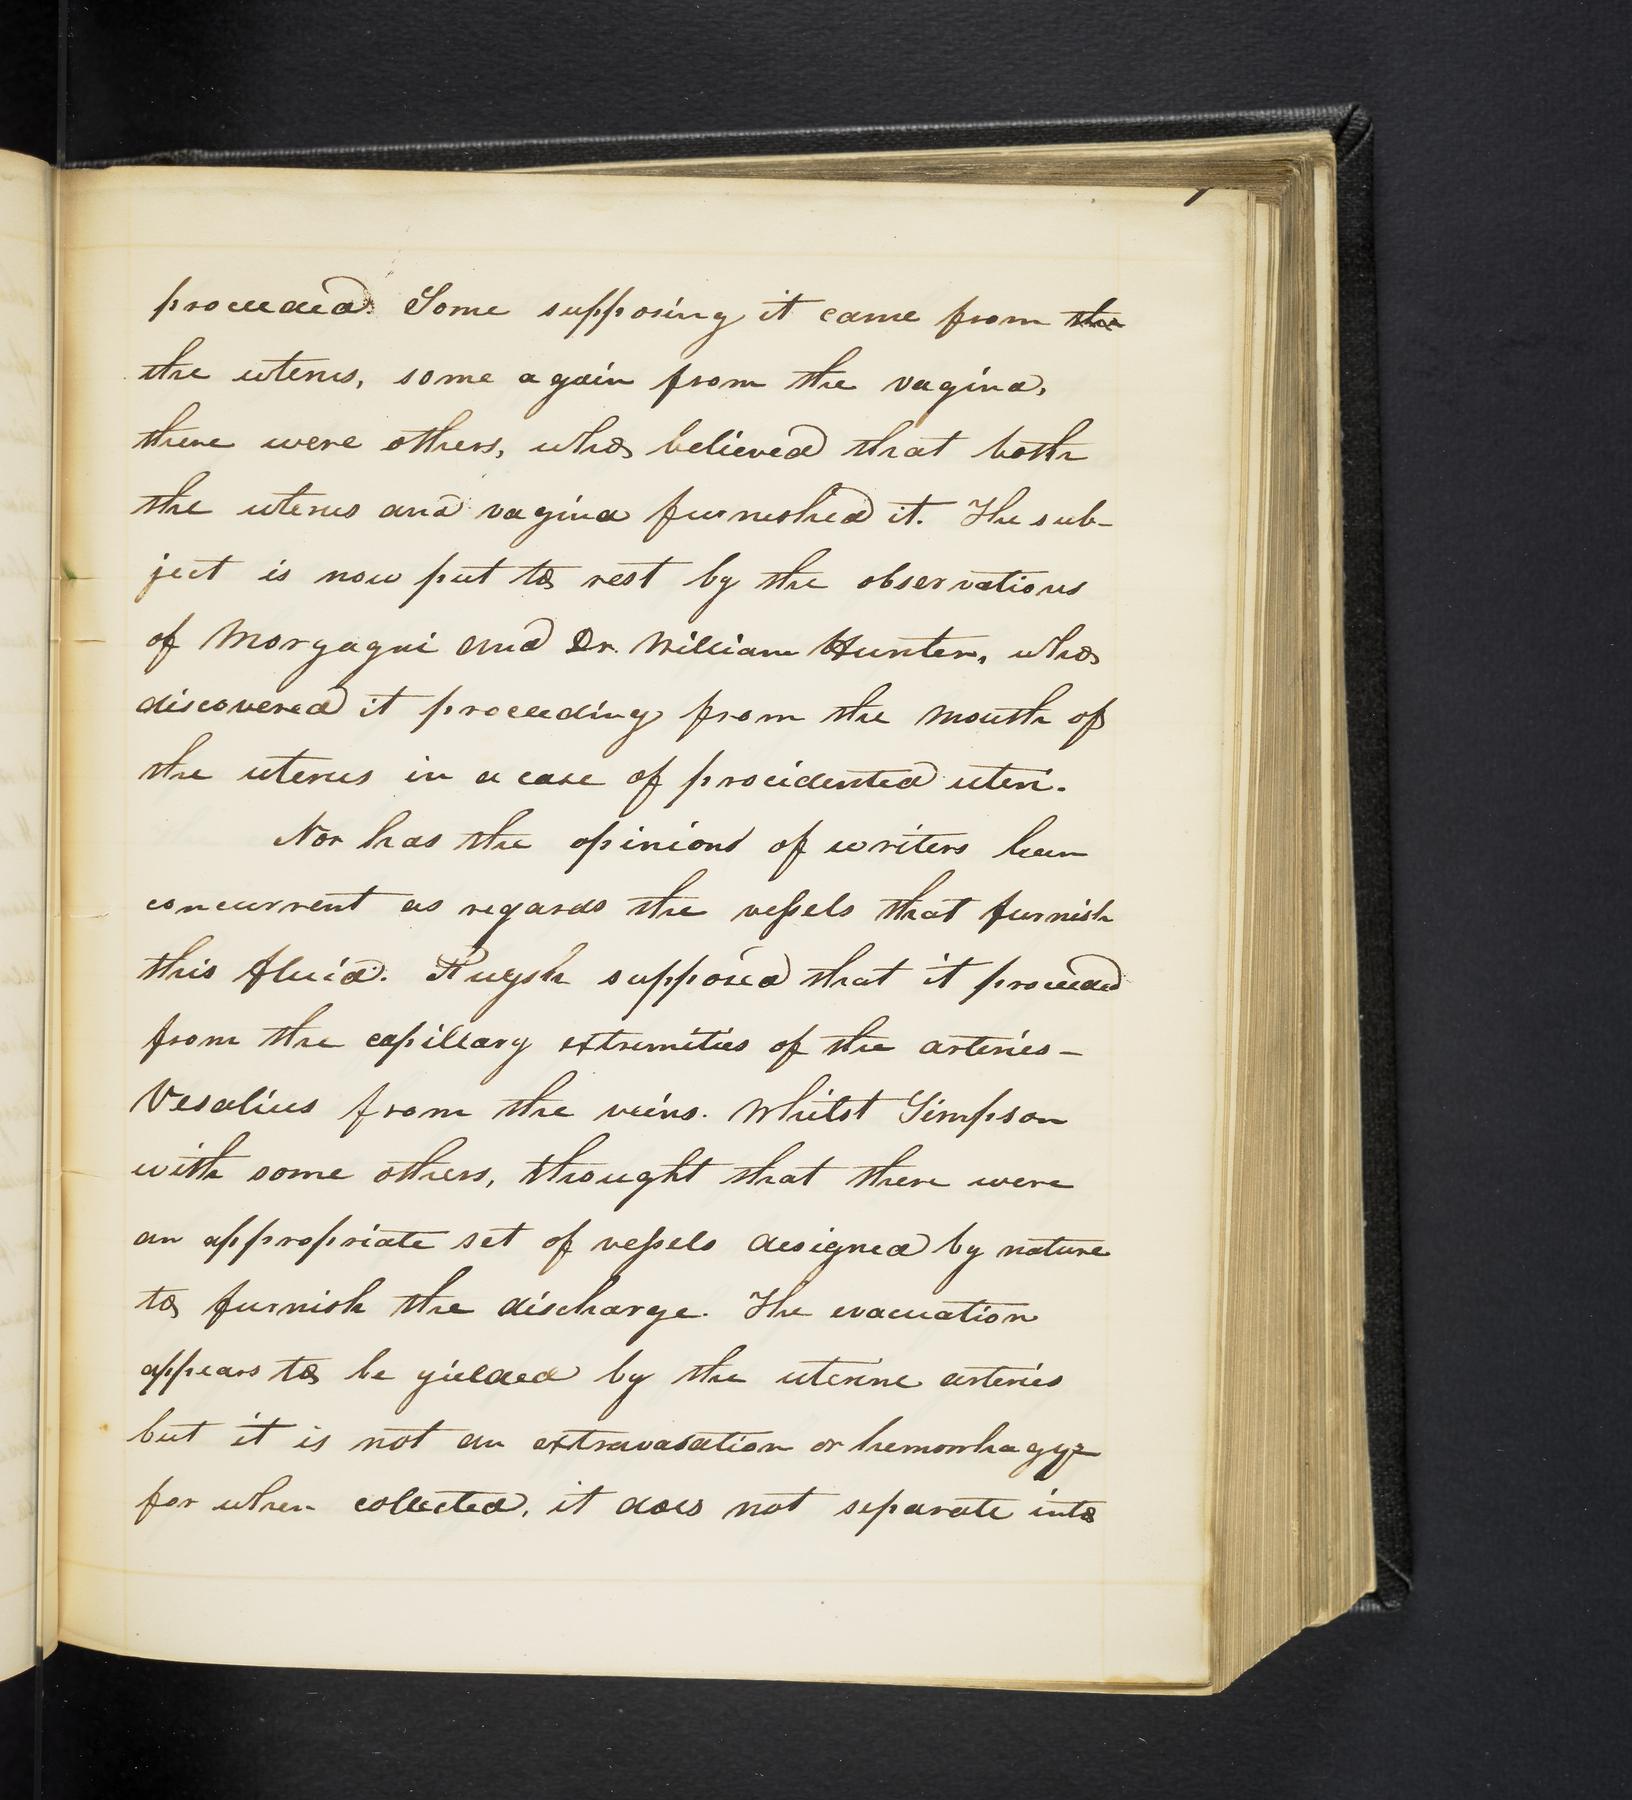 proceeded. Some supposing it came from the
the uterus, some again from the vagina,
there were others, who believed that both
the uterus and vagina furnished it. The sub-
ject is now put to rest by the observations
of Morgagni and Dr. William Hunter, who
discovered it proceeding from the mouth of
the uterus in a case of procidentia uteri.
Nor has the opinions of writers been
concurrent as regards the vessels that furnish
this fluid. Ruysh supposed that it proceeded
from the capillary extremities of the arteries—
Vesalius from the veins. Whilst Simpson
with some others, thought that there were
an appropriate set of vessels designed by nature
to furnish the discharge. The evacuation
appears to be yielded by the uterine arteries
but it is not an extravasation or hemorrhagy
for when collected, it does not separate into